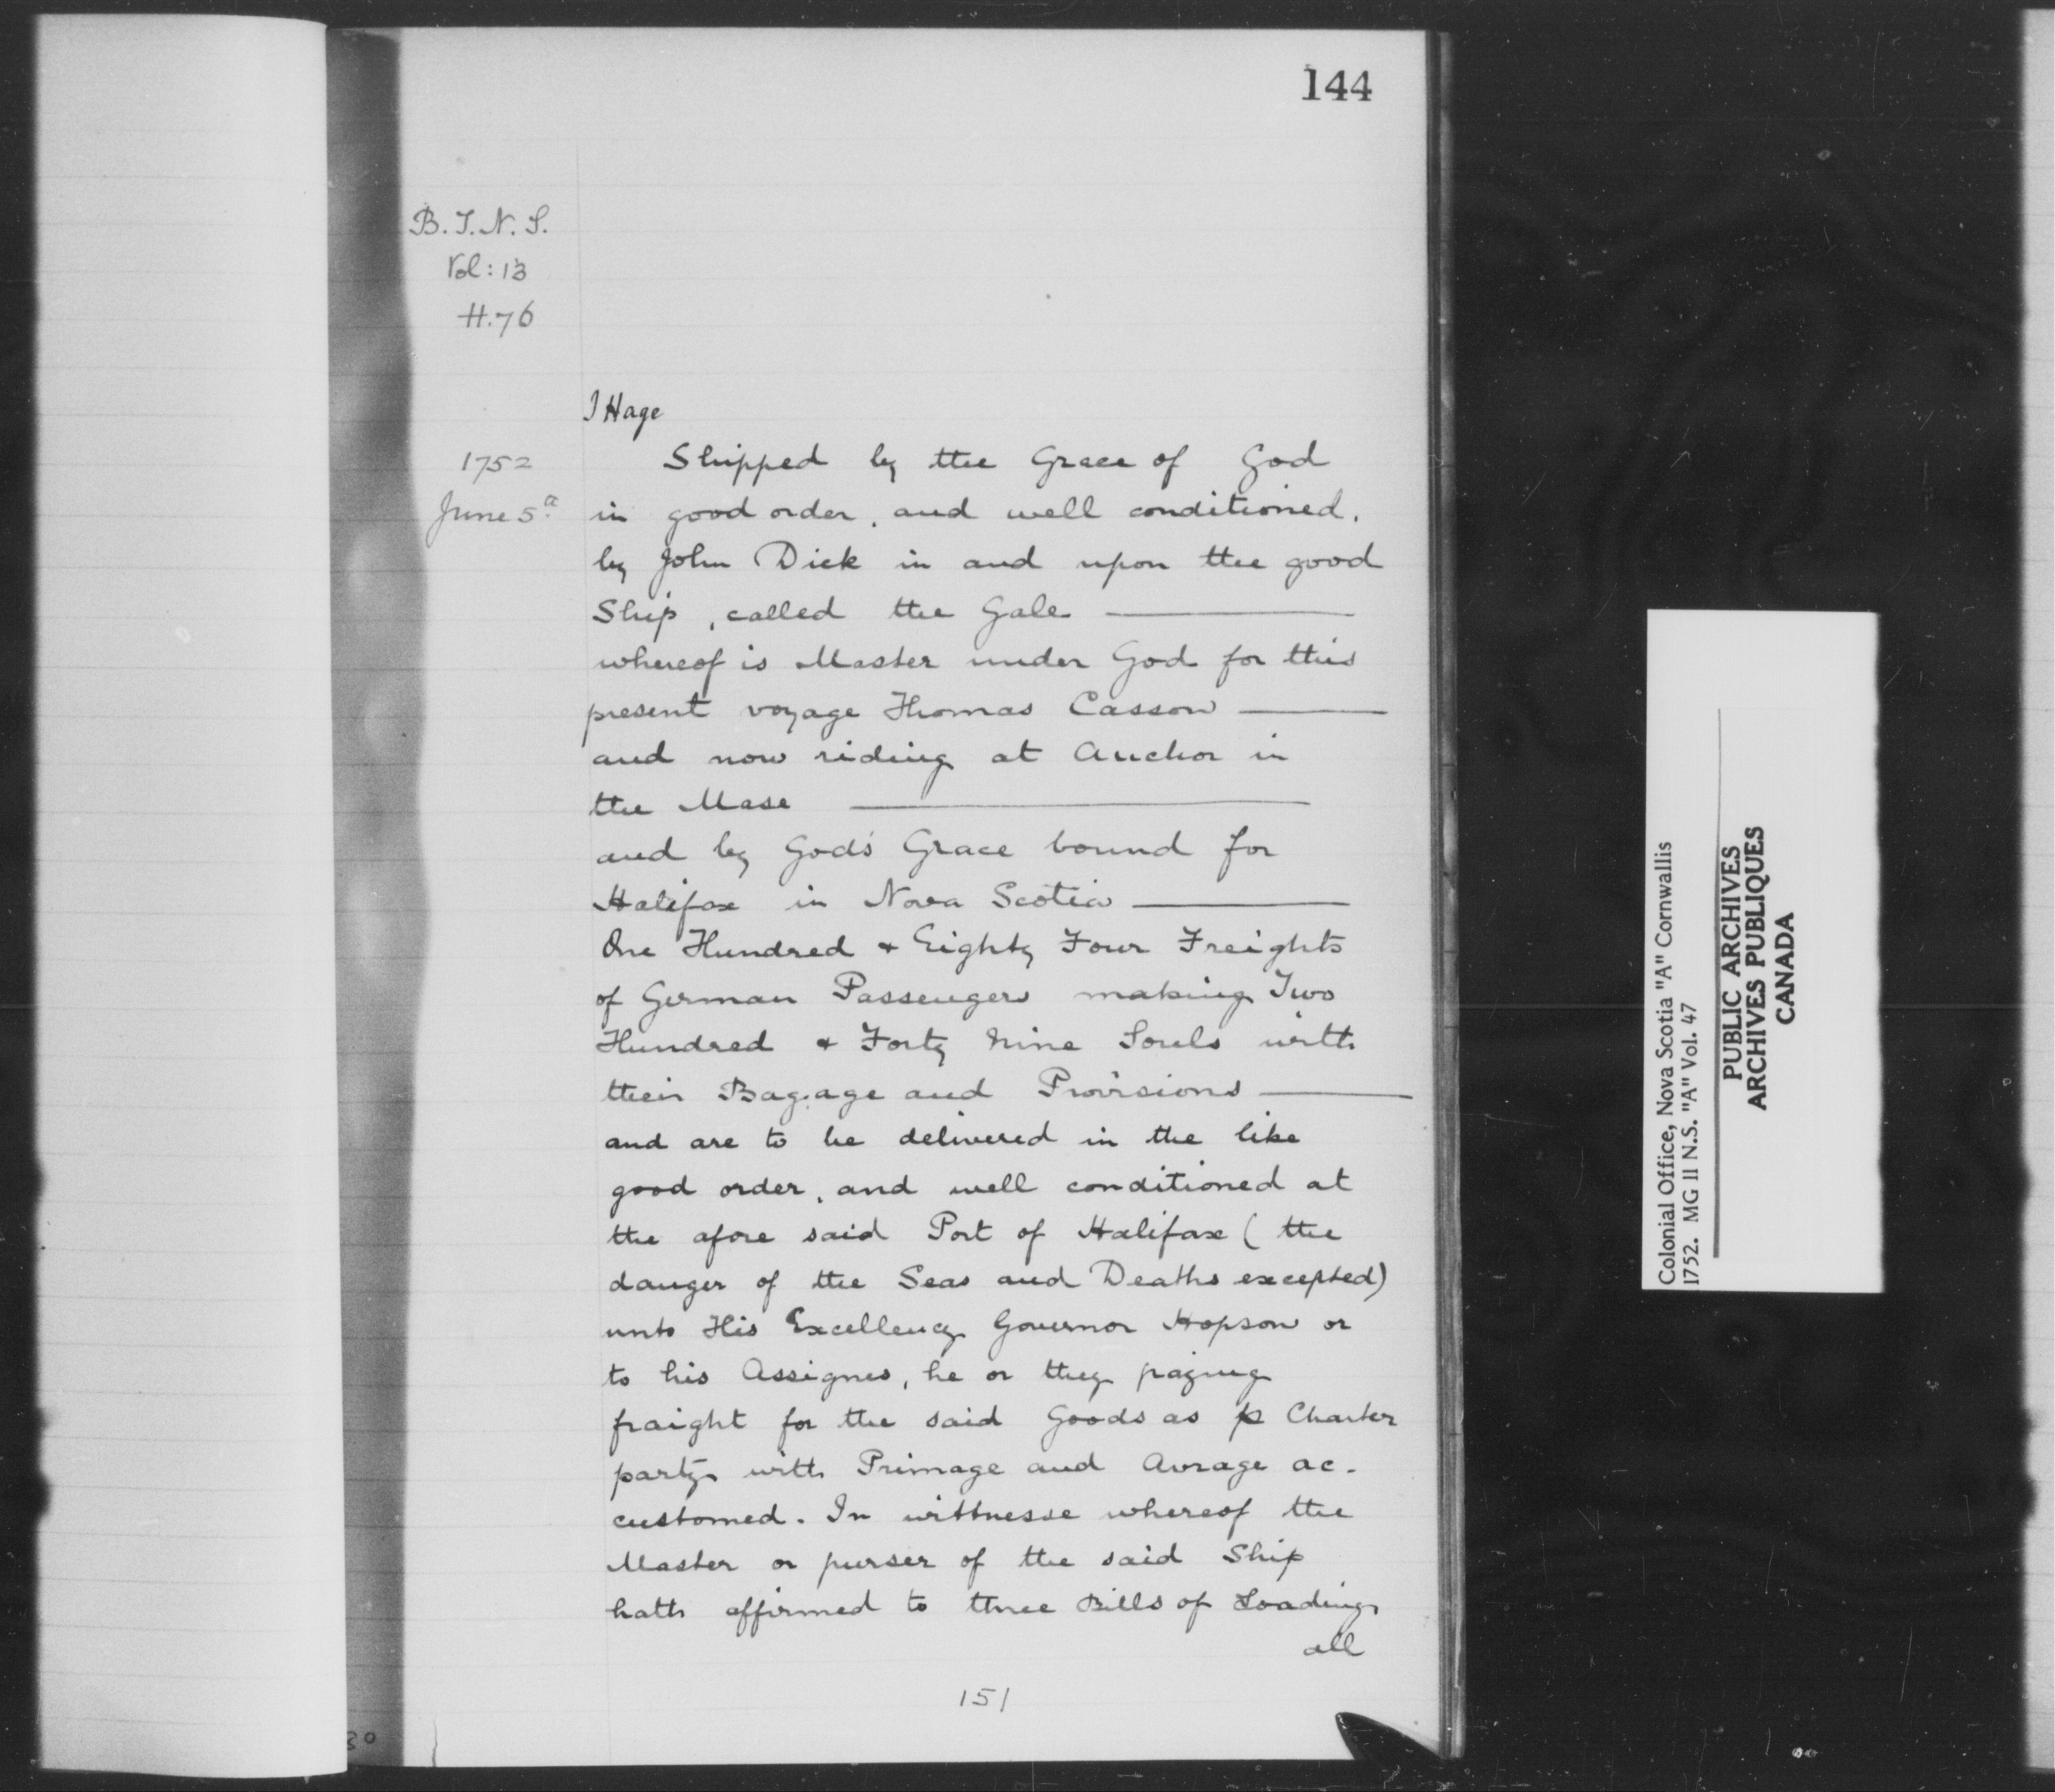 144
B.T.N.S.
Vol: 13
H.76
J Hage
1752
June 5
Shipped by the Grace of God
in good order, and well conditioned,
by John Dick in and upon the good
Ship, called the Gale
whereof is Master under God for this
present voyage Thomas Casson
and now riding at Anchor in
the Mase
and by God's Grace bound for
Halifax in Nova Scotia
One Hundred & Eighty Four Freights
of German Passengers making Two
Hundred & Forty Nine Souls with
their Bagage and Provisions
and are to be delivered in the like
good order, and well conditioned at
the afore said Port of Halifax (the
danger of the Seas and Deaths excepted)
unto His Excellency Governor Hopson or
to his Assignes, he or they paying
fraight for the said Goods as p Charter
party with Primage and Avrage ac-
customed. In wittnesse whereof the
Master or purser of the said Ship
hath affirmed to three Bills of Loading
all
151
30
Colonial Office, Nova Scotia "A" Cornwallis
1752. MG II N.S. "A" Vol. 47
PUBLIC ARCHIVES
ARCHIVES PUBLIQUES
CANADA